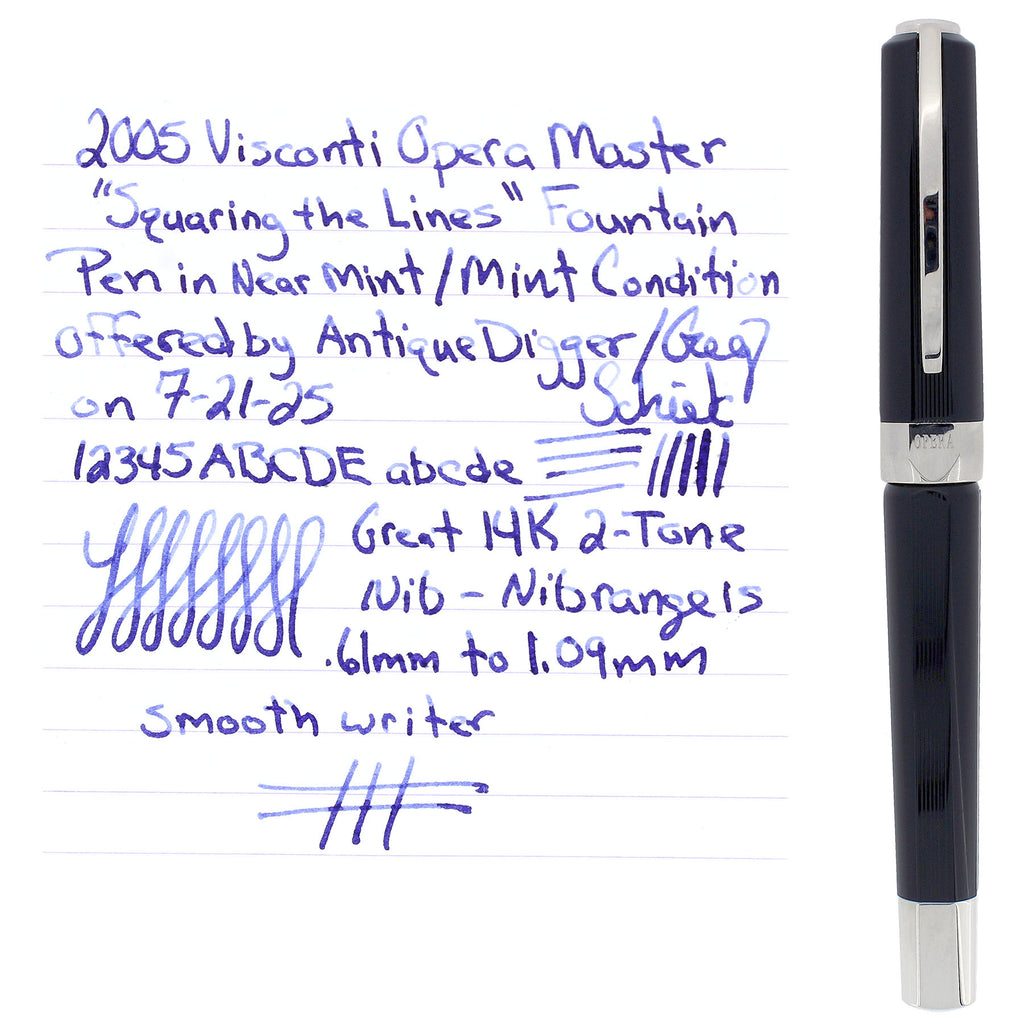 2005 Visconti Opera Master
"Squaring the Lines" Fountain
Pen in Near Mint/Mint Condition
offered by AntiqueDigger/Greg
Schiek
on 7-21-25
12345 ABCDE abcde
Great 14K 2-Tone
Nib - Nib range is
.61mm to 1.09mm
smooth writer
OPERA